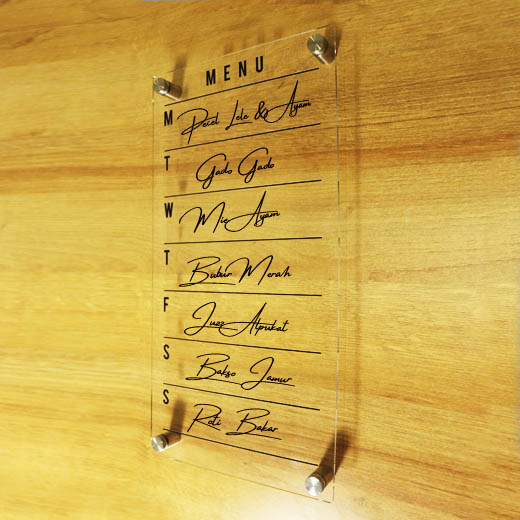 MENU
M Pecel Lele & Ayam
T Gado Gado
W Mie Ayam
T Bubur Merah
F Juzz Alpukat
S Bakso Jamur
S Roti Bakar